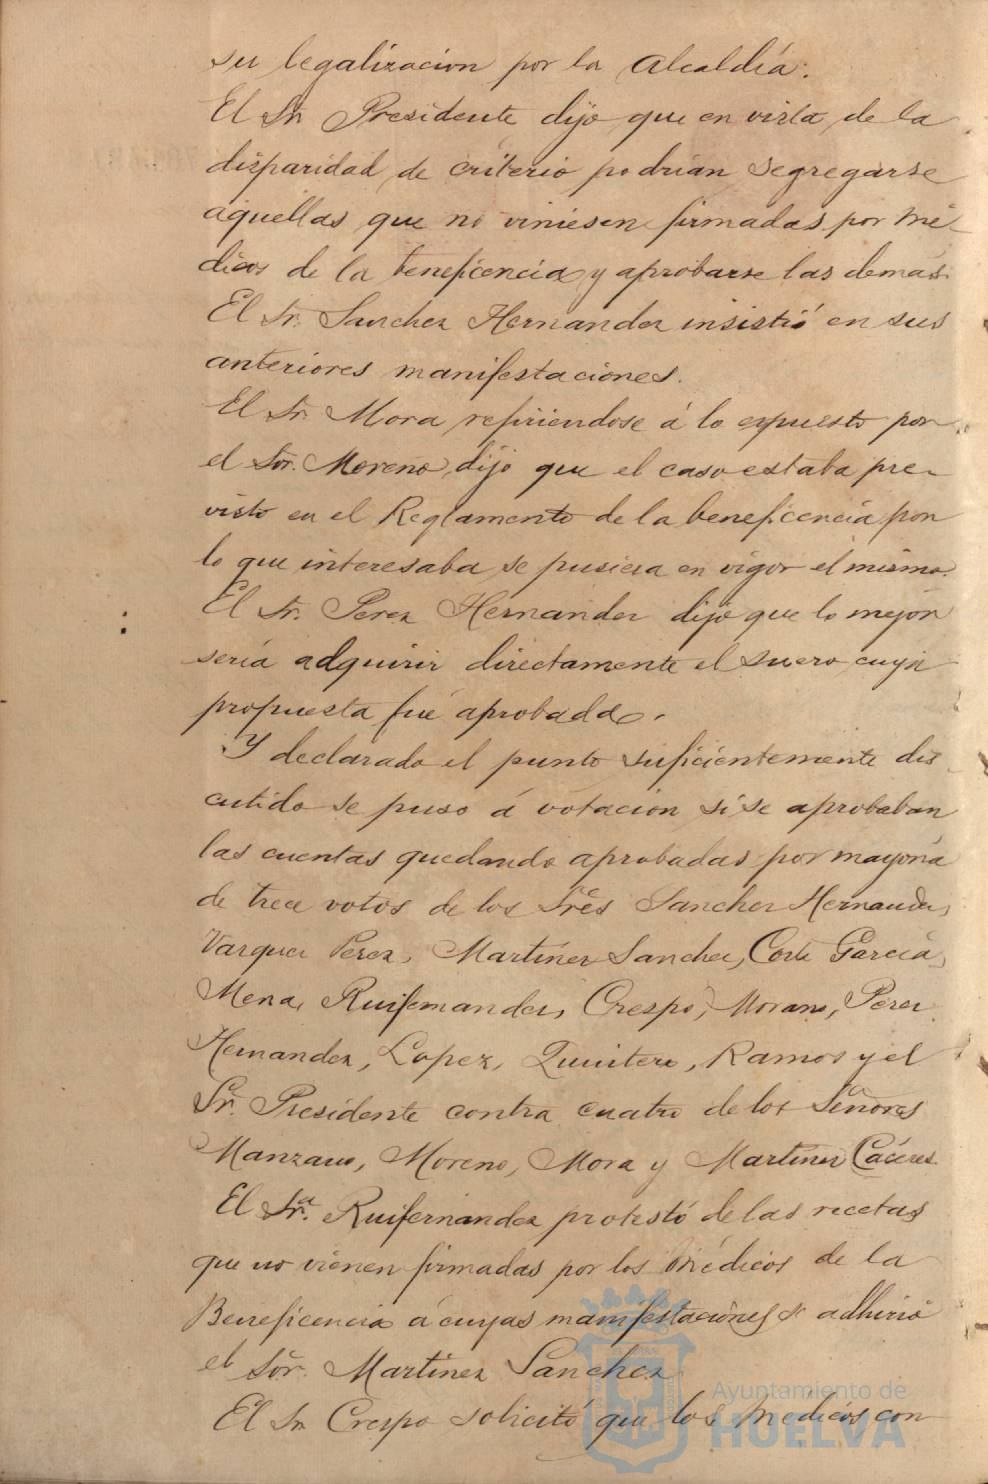 su legalizacion por la Alcaldía.
El Sr. Presidente dijo que en vista de la
disparidad de criterio podrian segregarse
aquellas que no viniesen firmadas por Mé-
dicos de la beneficencia y aprobarse las demás.
El Sr. Sanchez Hernandez insistió en sus
anteriores manifestaciones.
El Sr. Mora refiriendose á lo expuesto por
el Sor. Moreno dijo que el caso estaba pre-
visto en el Reglamento de la beneficencia por
lo que interesaba se pusiera en vigor el mismo.
El Sr. Perez Hernandez dijo que lo mejor
seria adquirir directamente el suero, cuya
propuesta fué aprobada.
Y declarado el punto suficientemente dis-
cutido se puso á votación si se aprobaban
las cuentas quedando aprobadas por mayoria
de trece votos de los Sres Sanchez Hernandez,
Vazquez Perez, Martínez Sanchez, Corte García,
Mena, Ruifernandez, Crespo, Morano, Perez
Hernandez, Lopez, Quintero, Ramos y el
Sr. Presidente contra cuatro de los Señores
Manzano, Moreno, Mora y Martinez Cáceres
El Sr. Ruifernandez protestó de las recetas
que no vienen firmadas por los Médicos de la
Beneficencia á cuyas manifestaciones se adhirió
el Sor. Martinez Sanchez
El Sr. Crespo solicitó que los Medicos con
Ayuntamiento de
HUELVA